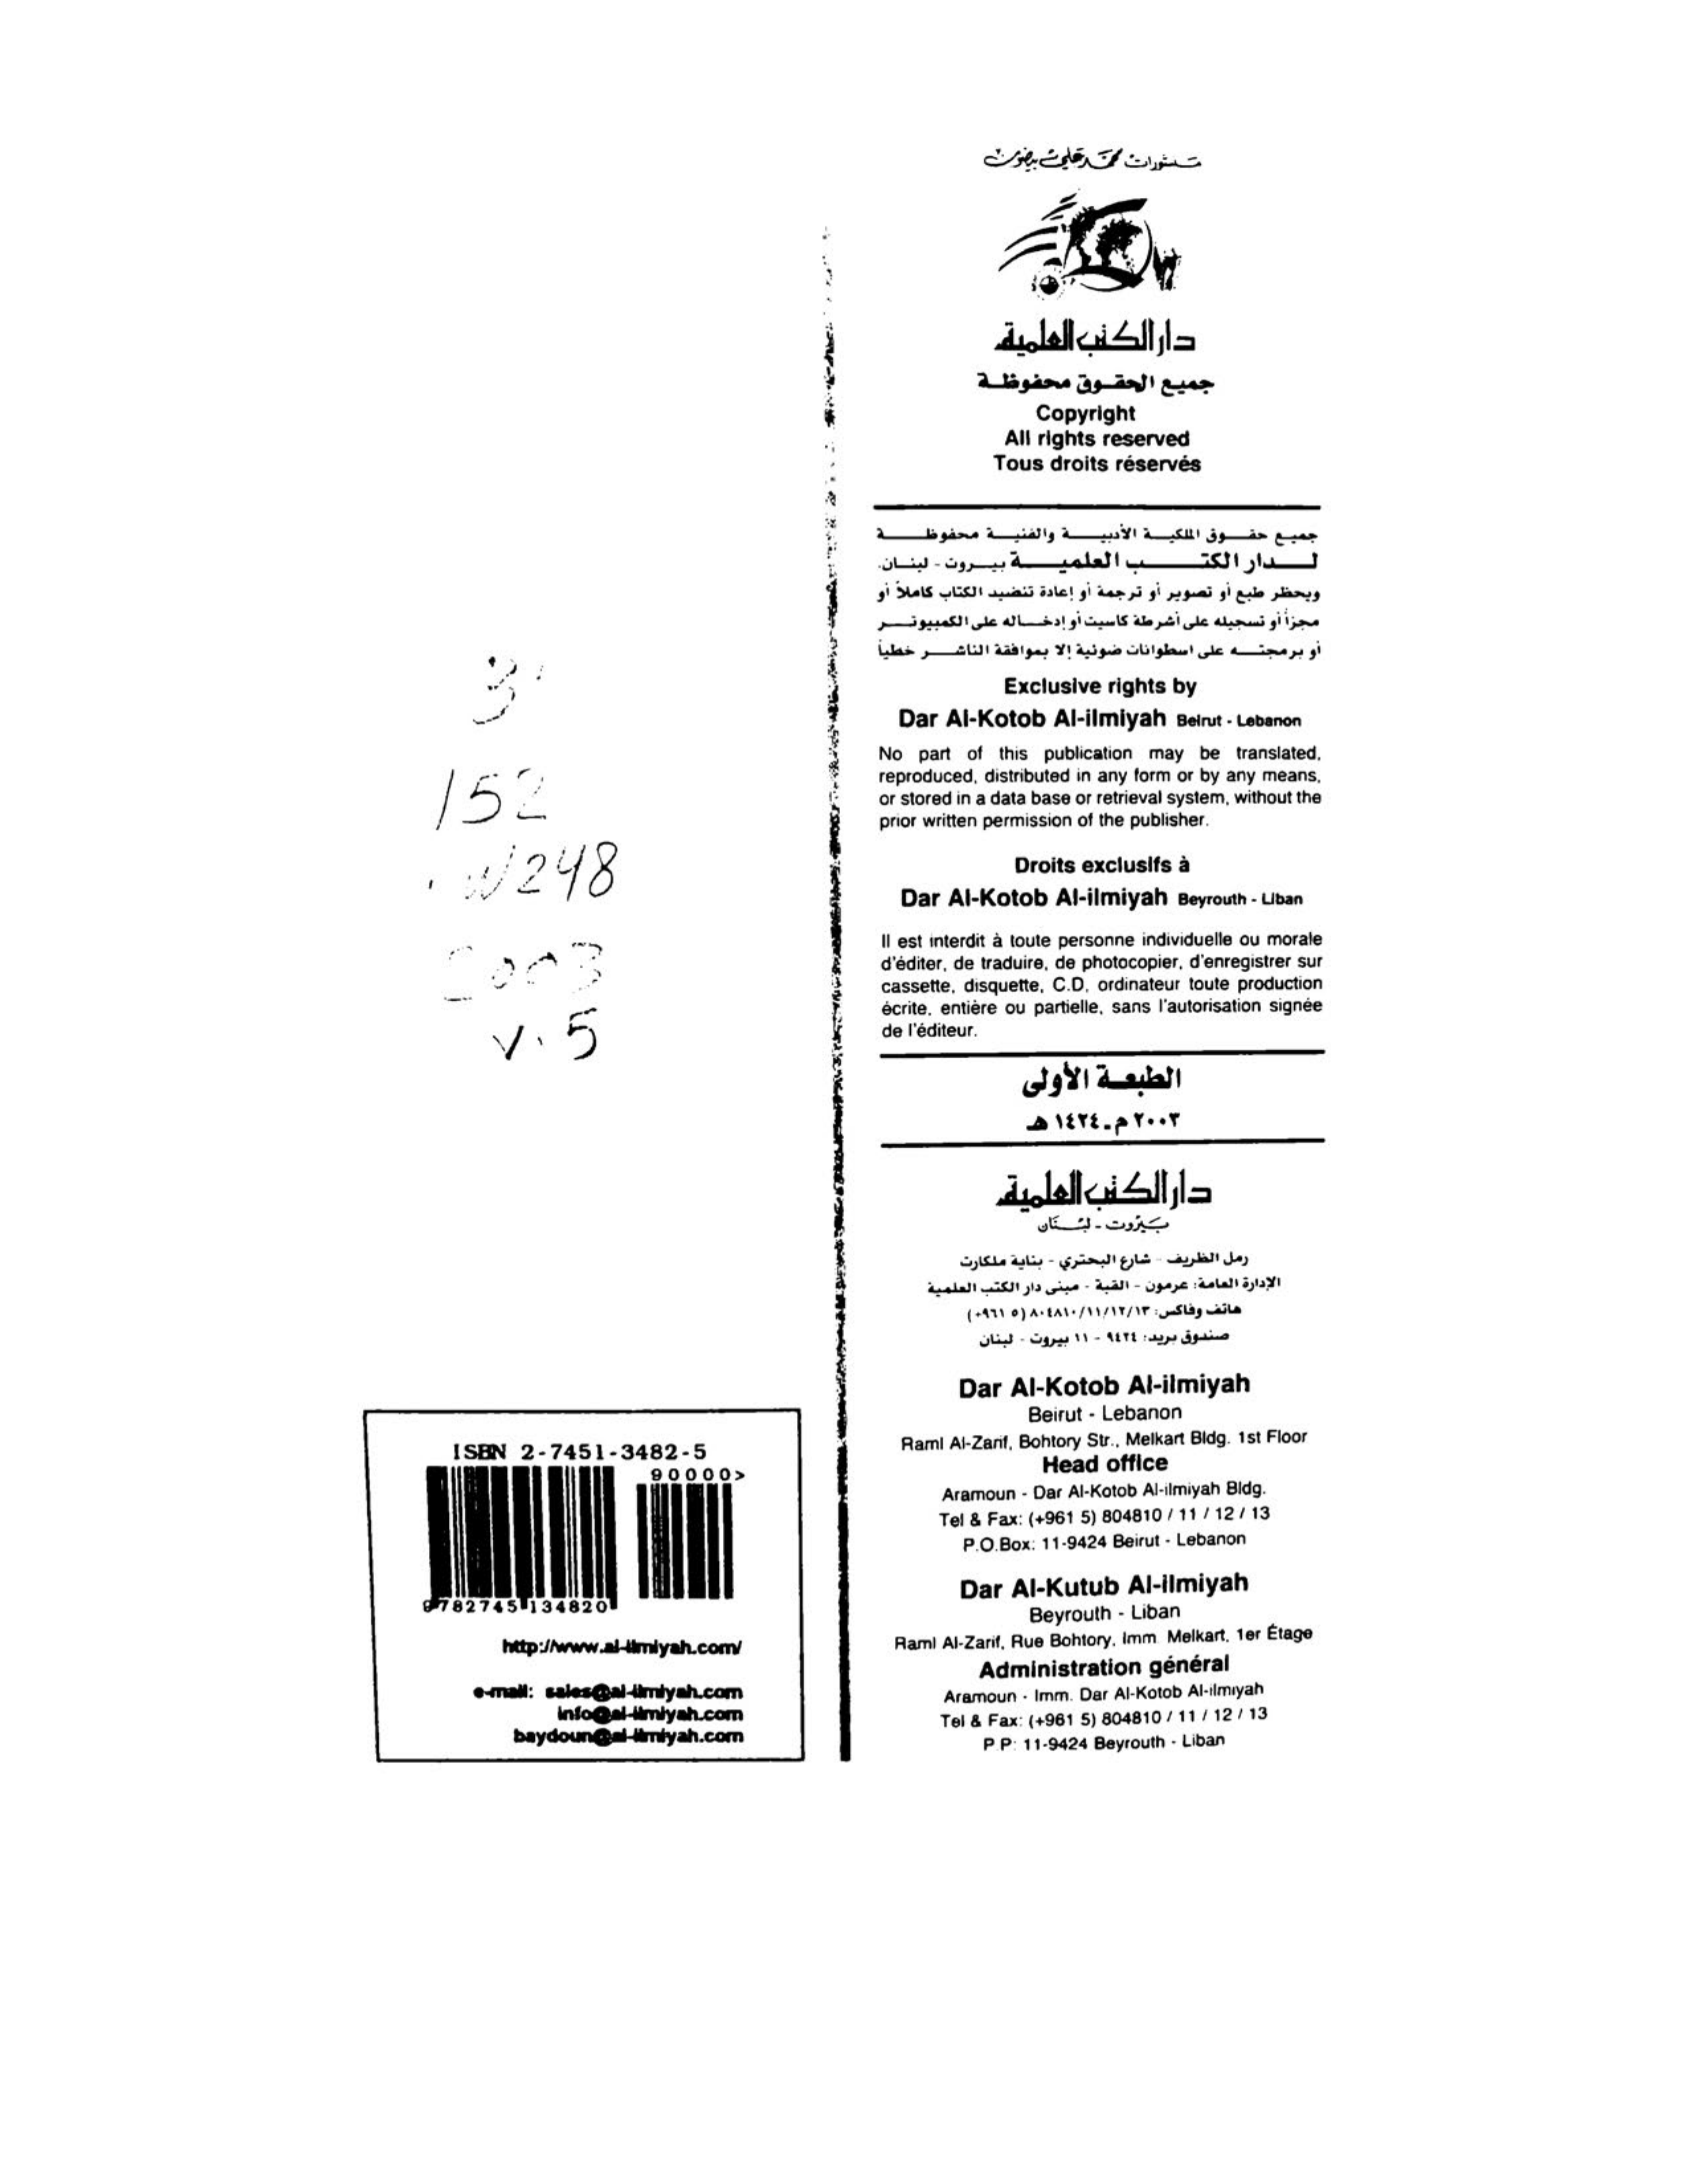 منشورات محمد علي بيضون
دار الكتب العلمية
جميع الحقوق محفوظة
Copyright
All rights reserved
Tous droits réservés
جميع حقوق الملكية الأدبية والفنية محفوظة
لدار الكتب العلمية بيروت - لبنان.
ويحظر طبع أو تصوير أو ترجمة أو إعادة تنضيد الكتاب كاملاً أو
مجزأ أو تسجيله على أشرطة كاسيت أو إدخاله على الكمبيوتر
أو برمجته على اسطوانات ضوئية إلا بموافقة الناشر خطياً
Exclusive rights by
Dar Al-Kotob Al-ilmiyah Beirut - Lebanon
No part of this publication may be translated,
reproduced, distributed in any form or by any means,
or stored in a data base or retrieval system, without the
prior written permission of the publisher.
Droits exclusifs à
Dar Al-Kotob Al-ilmiyah Beyrouth - Liban
Il est interdit à toute personne individuelle ou morale
d'éditer, de traduire, de photocopier, d'enregistrer sur
cassette, disquette, C.D, ordinateur toute production
écrite, entière ou partielle, sans l'autorisation signée
de l'éditeur.
الطبعة الأولى
٢٠٠٣ م ـ ١٤٢٤ هـ
دار الكتب العلمية
بيروت - لبنان
رمل الظريف - شارع البحتري - بناية ملكارت
الإدارة العامة: عرمون - القبة - مبنى دار الكتب العلمية
هاتف وفاكس: ٨٠٤٨١٠/١١/١٢/١٣ (٥ ٩٦١+)
صندوق بريد: ٩٤٢٤ - ١١ بيروت - لبنان
Dar Al-Kotob Al-ilmiyah
Beirut - Lebanon
Raml Al-Zarif, Bohtory Str., Melkart Bldg. 1st Floor
Head office
Aramoun - Dar Al-Kotob Al-ilmiyah Bldg.
Tel & Fax: (+961 5) 804810 / 11 / 12 / 13
P.O.Box: 11-9424 Beirut - Lebanon
Dar Al-Kutub Al-ilmiyah
Beyrouth - Liban
Raml Al-Zarif, Rue Bohtory, Imm. Melkart, 1er Étage
Administration général
Aramoun - Imm. Dar Al-Kotob Al-ilmiyah
Tel & Fax: (+961 5) 804810 / 11 / 12 / 13
P P: 11-9424 Beyrouth - Liban
152
.W248
2003
v.5
ISBN 2-7451-3482-5
90000>
9 782745 134820
http://www.al-ilmiyah.com/
e-mail: sales@al-ilmiyah.com
info@al-ilmiyah.com
baydoun@al-ilmiyah.com